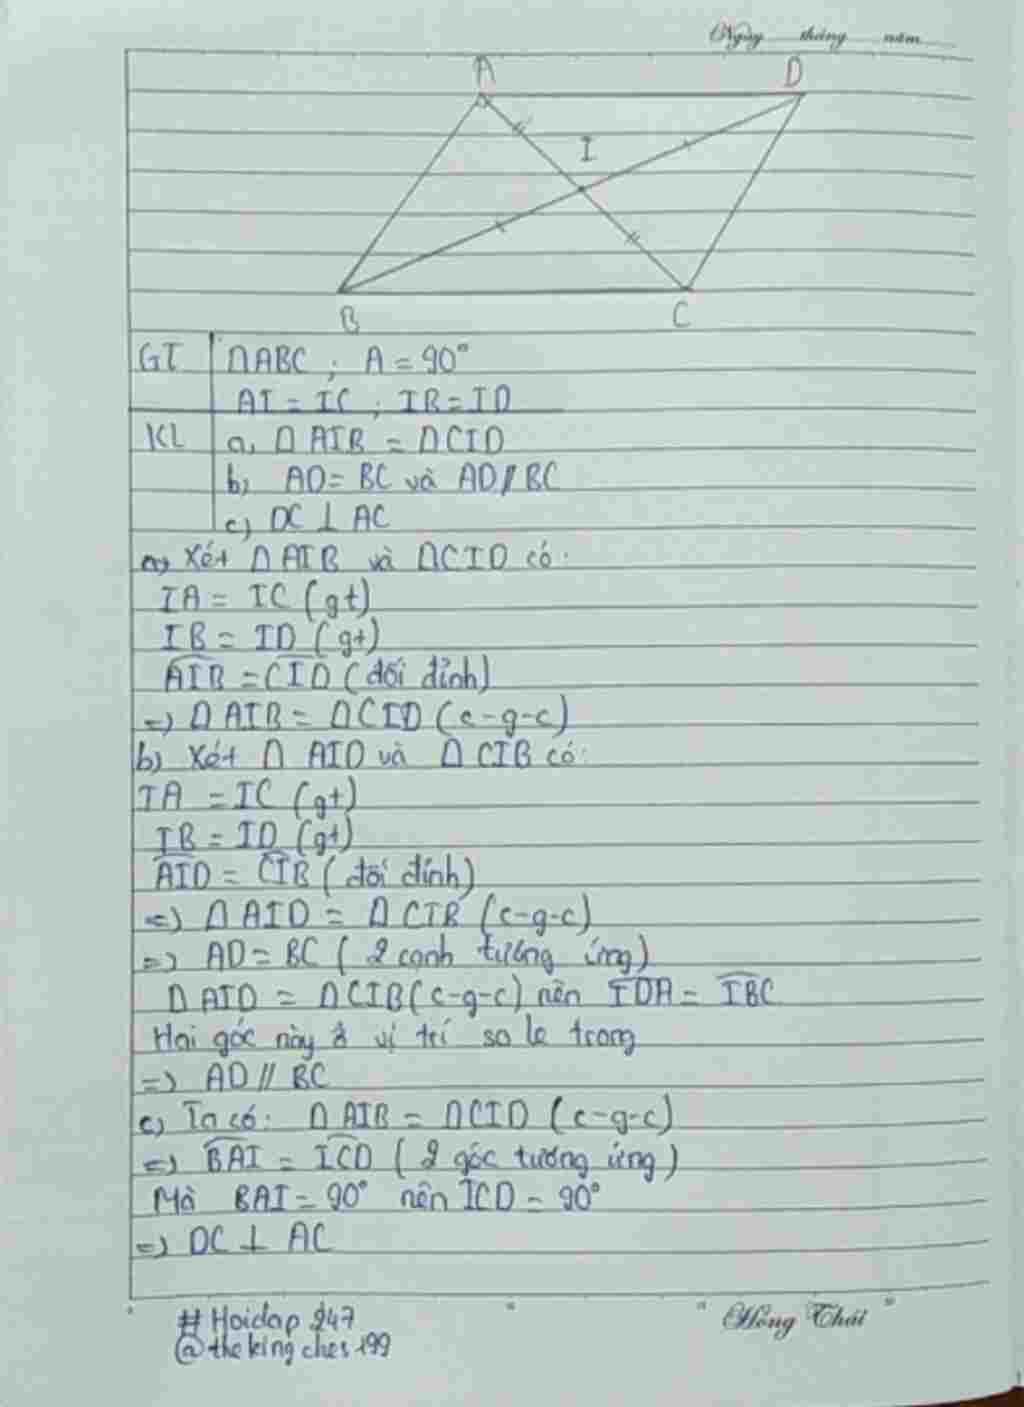 Ngày tháng năm
A D
I
B C
GT ΔABC ; A = 90°
AI = IC ; IB = ID
KL a, Δ AIB = ΔCID
b) AD = BC và AD // BC
c) DC ⊥ AC
a) Xét Δ AIB và ΔCID có:
IA = IC (gt)
IB = ID (gt)
AIB = CID (đối đỉnh)
=) Δ AIB = ΔCID (c-g-c)
b) Xét Δ AID và Δ CIB có:
IA = IC (gt)
IB = ID (gt)
AID = CIB (đối đỉnh)
=) Δ AID = ΔCIB (c-g-c)
=) AD = BC ( 2 cạnh tương ứng)
Δ AID = ΔCIB (c-g-c) nên IDA = IBC
Hai góc này ở vị trí so le trong
=) AD // BC
c) Ta có: Δ AIB = ΔCID (c-g-c)
=) BAI = ICD ( 2 góc tương ứng)
Mà BAI = 90° nên ICD = 90°
=) DC ⊥ AC
# Hoidap 247 Hồng Thái
@thekingches199